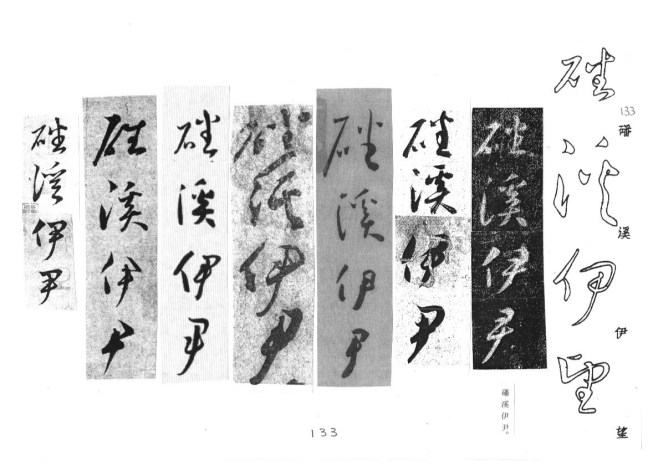 133
磻溪伊望
磻溪伊望
磻溪伊尹
磻溪伊尹
磻溪伊尹
磻溪伊尹
磻溪伊尹
磻溪伊尹
磻溪伊尹
磻溪伊尹。
133